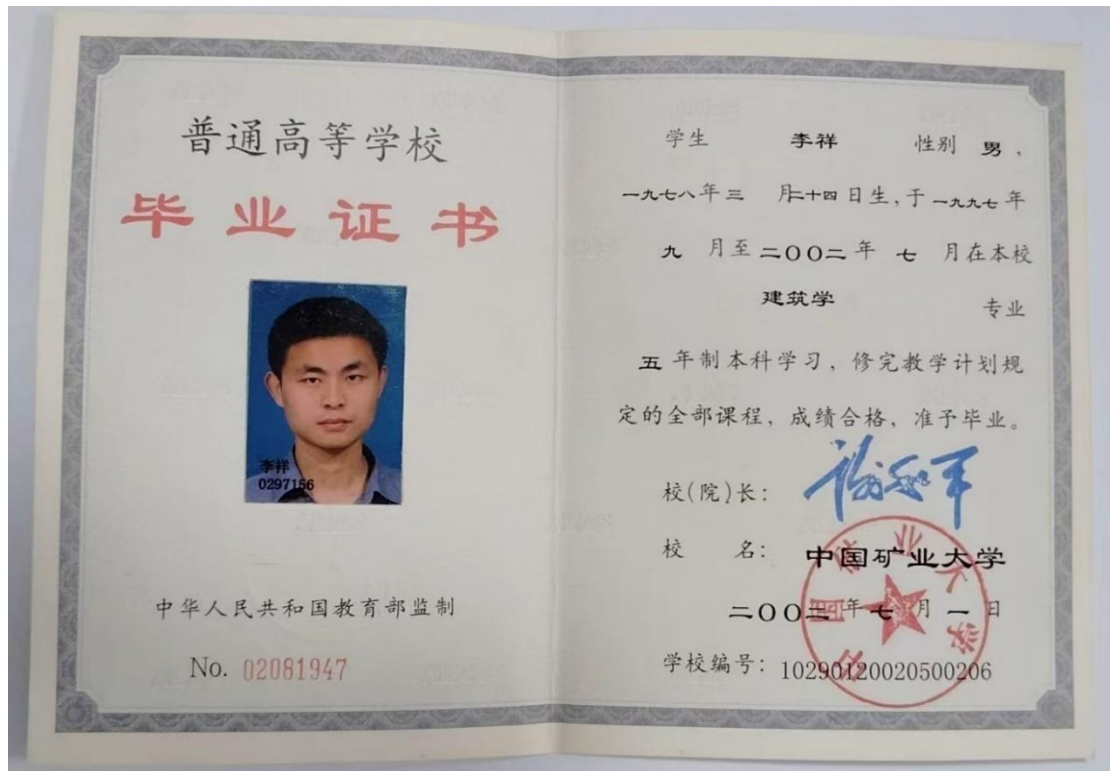 普通高等学校
毕业证书
李祥
0297156
中华人民共和国教育部监制
No. 02081947
学生 李祥 性别 男、
一九七八年三 月二十四日生,于一九九七年
九 月至二〇〇二年 七 月在本校
建筑学 专业
五 年制本科学习,修完教学计划规
定的全部课程,成绩合格,准予毕业。
校(院)长: 谢和平
校 名: 中国矿业大学
二〇〇二年七月一日
学校编号: 10290120020500206
中国矿业大学